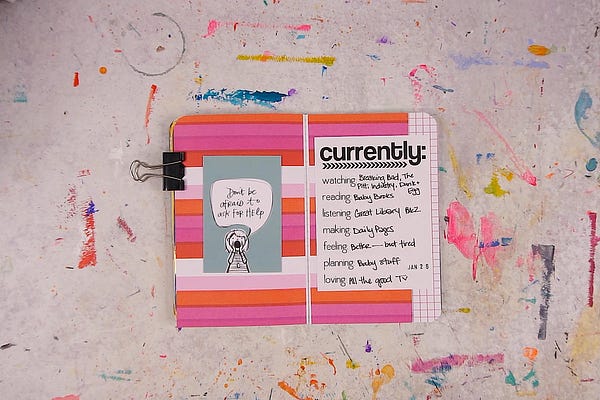 Don't be
afraid to
ask for Help
currently:
watching Breaking Bad, The
Pitt, Industry, Dunk +
Egg
reading Baby Books
listening Great Library Bk2
making Daily Pages
feeling Better — but tired
planning Baby stuff
JAN 26
loving All the good TV